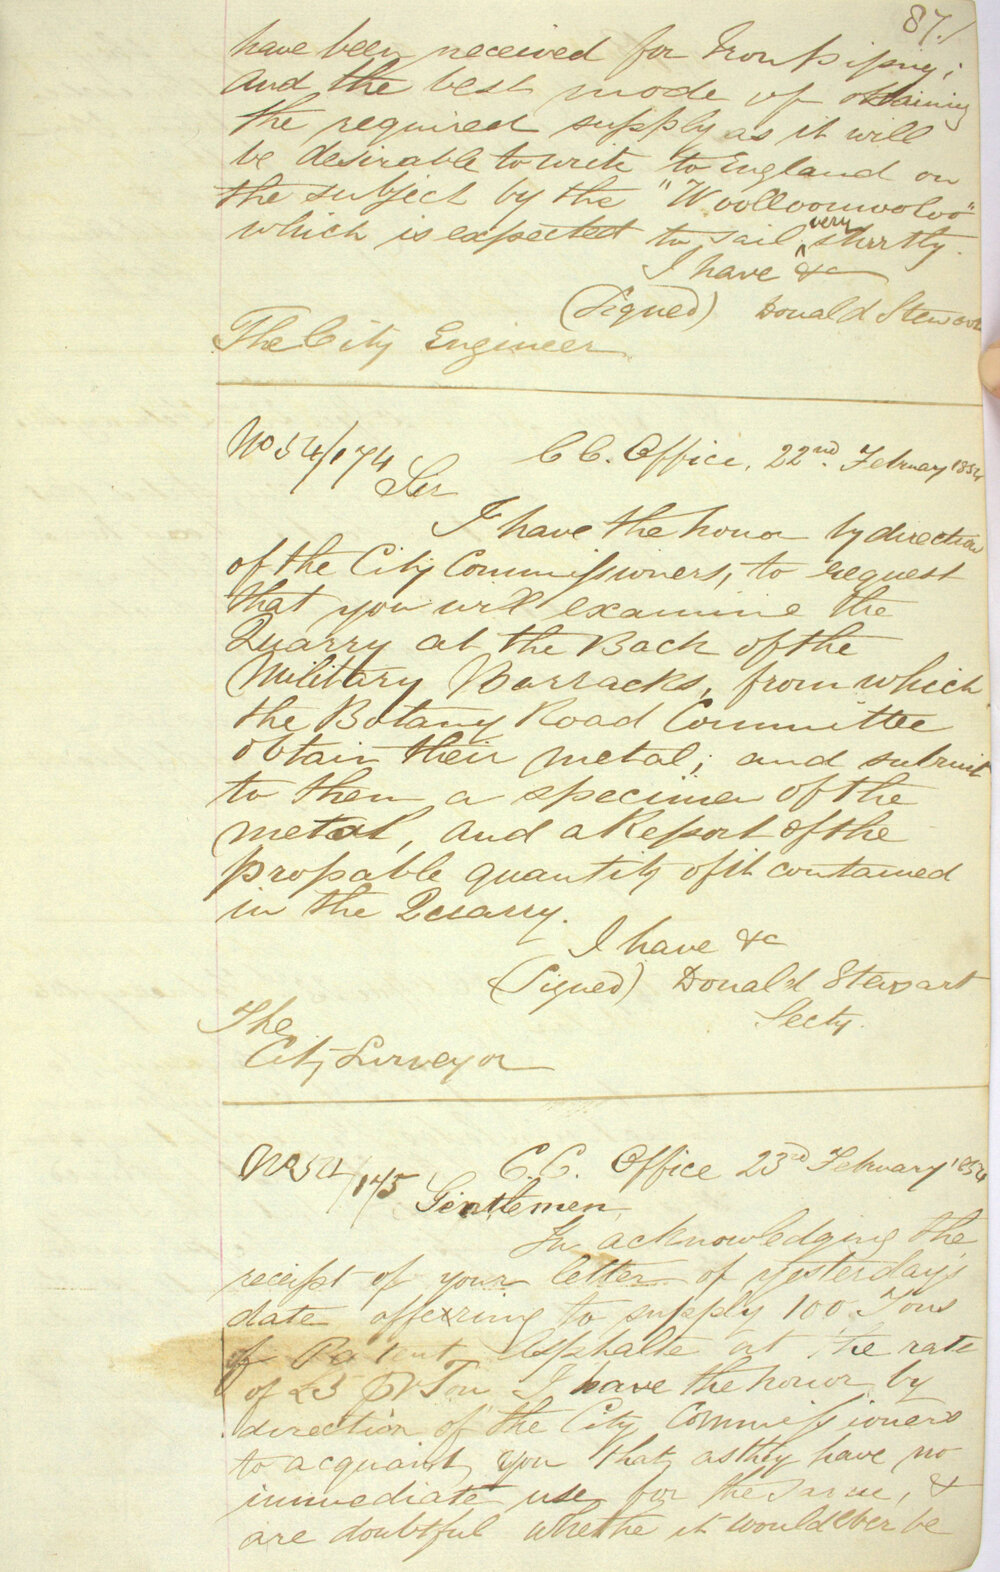 87./
have been received for Iron piping;
and the best mode of obtaining
the required supply as it will
be desirable to write to England on
the subject by the "Woolloomooloo"
which is expected to sail very shortly.
I have &c
(Signed) Donald Stewart
The City Engineer
No 54/174 C C. Office, 22nd. February 1854
Sir
I have the honor by direction
of the City Commissioners, to request
that you will examine the
Quarry at the Back of the
Military Barracks, from which
the Botany Road Committee
obtain their metal; and submit
to them a specimen of the
metal, and a Report of the
propable quantity of it contained
in the Quarry.
I have &c
(Signed) Donald Stewart
Secty.
The
City Surveyor
No 54/175 C.C. Office 23rd February 1854
Gentlemen
In acknowledging the
receipt of your letter of yesterdays
date offering to supply 100 Tons
of Patent Asphalte at the rate
of £5 Pr Ton I have the honor by
direction of the City Commissioners
to acquaint you that as they have no
immediate use for the same, &
are doubtful whethe it would ever be